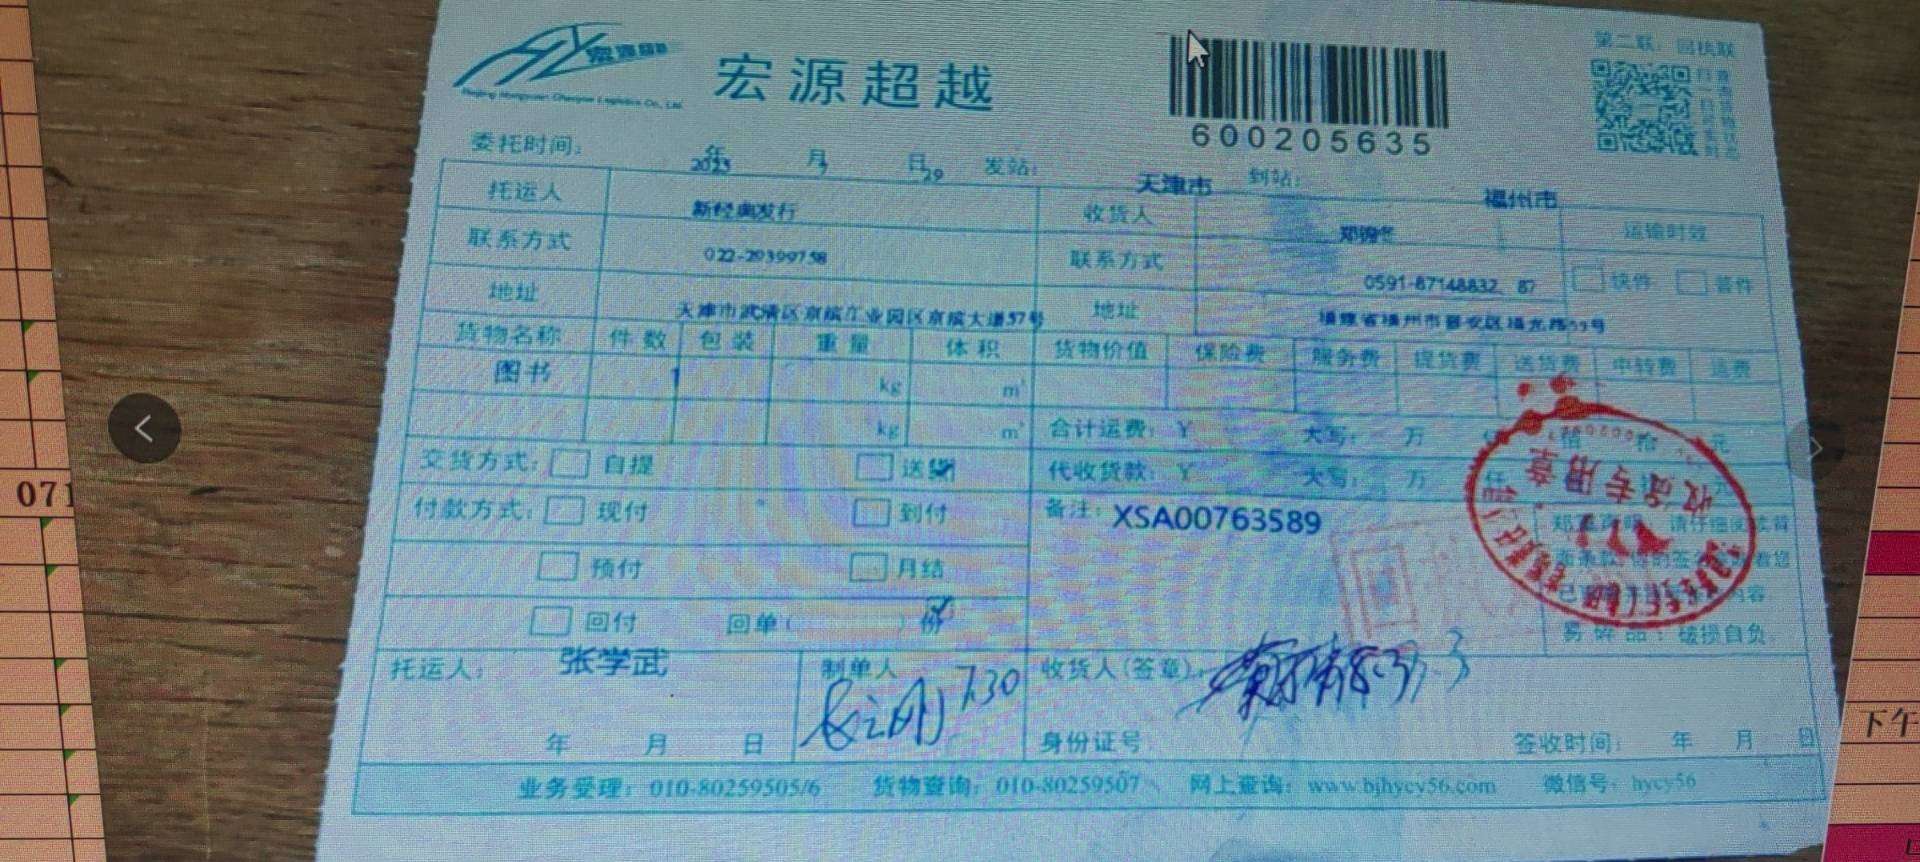 宏源超越
宏源超越
600205635
第二联：回执联
委托时间： 2023 年 7 月 29 日 发站： 天津市 到站： 福州市
托运人 新经典发行 收货人 运输时效
联系方式 022-29399758 联系方式 0591-87148832, 87 快件 普件
地址 天津市武清区京滨工业园区京滨大道57号 地址
货物名称 件数 包装 重量 体积 货物价值 保险费 服务费 提货费 送货费 中转费 运费
图书 1 kg m³
kg m³ 合计运费：￥ 大写： 万 仟 佰 拾 元
交货方式： 自提 送货 代收货款：￥ 大写： 万 仟
付款方式： 现付 到付 备注： XSA00763589
预付 月结
回付 回单（ ）份
易碎品：破损自负
收货专用章
托运人： 张学武 制单人 7.30 收货人(签章)：
年 月 日 身份证号 签收时间： 年 月 日
业务受理：010-80259505/6 货物查询：010-80259507 网上查询：www.bjhycy56.com 微信号：hycy56
071
下午